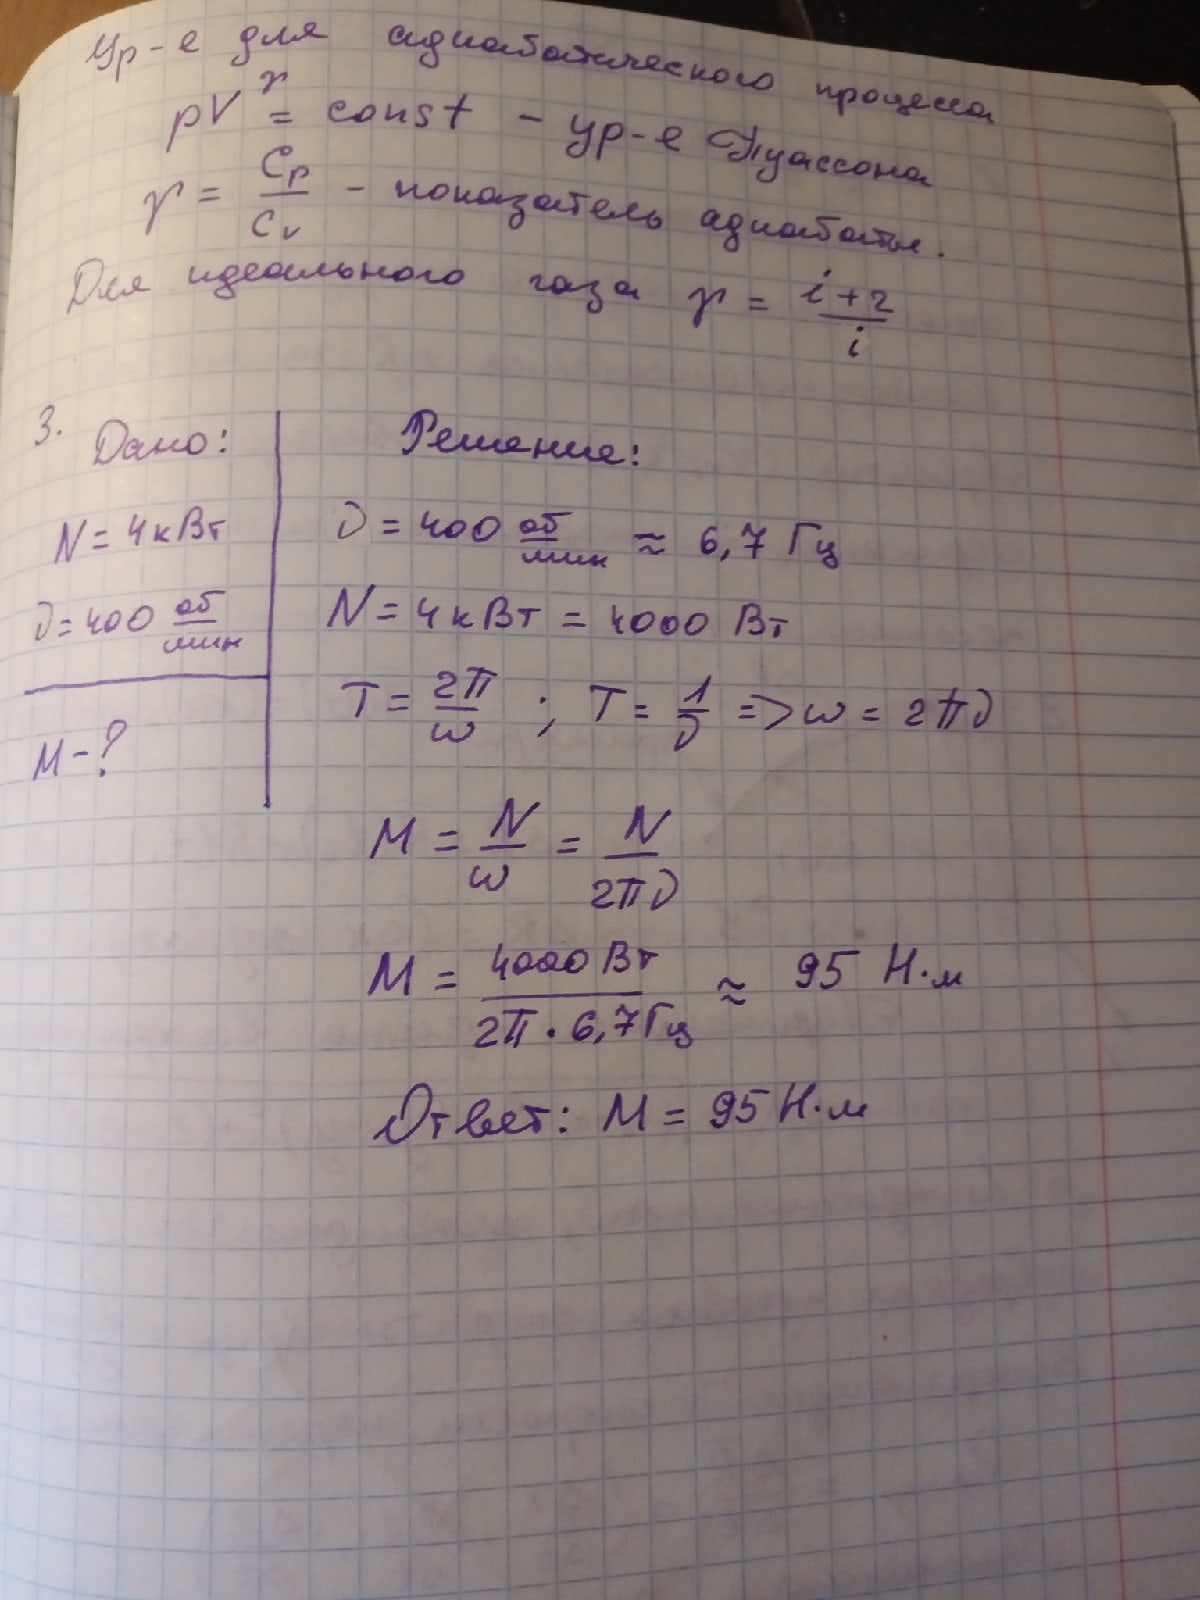 Ур-е для адиабатического процесса
pV^γ = const - ур-е Пуассона
γ = Cp/Cv - показатель адиабаты.
Для идеального газа γ = (i+2)/i
3. Дано:
N = 4 кВт
ν = 400 об/мин
M - ?
Решение:
ν = 400 об/мин ≈ 6,7 Гц
N = 4 кВт = 4000 Вт
T = 2π/ω ; T = 1/ν => ω = 2πν
M = N/ω = N/2πν
M = 4000 Вт/2π · 6,7 Гц ≈ 95 Н·м
Ответ: M = 95 Н·м